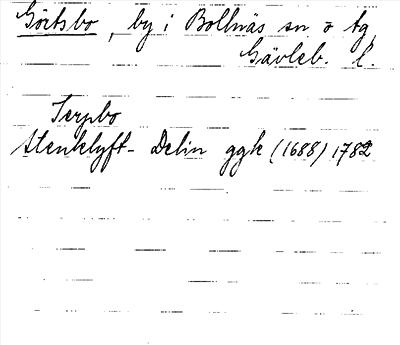 Görtsbo, by i Bollnäs sn o tg,
Gävleb. l.
Terpbo
Stenklyft- Delin ggk (1688) 1782